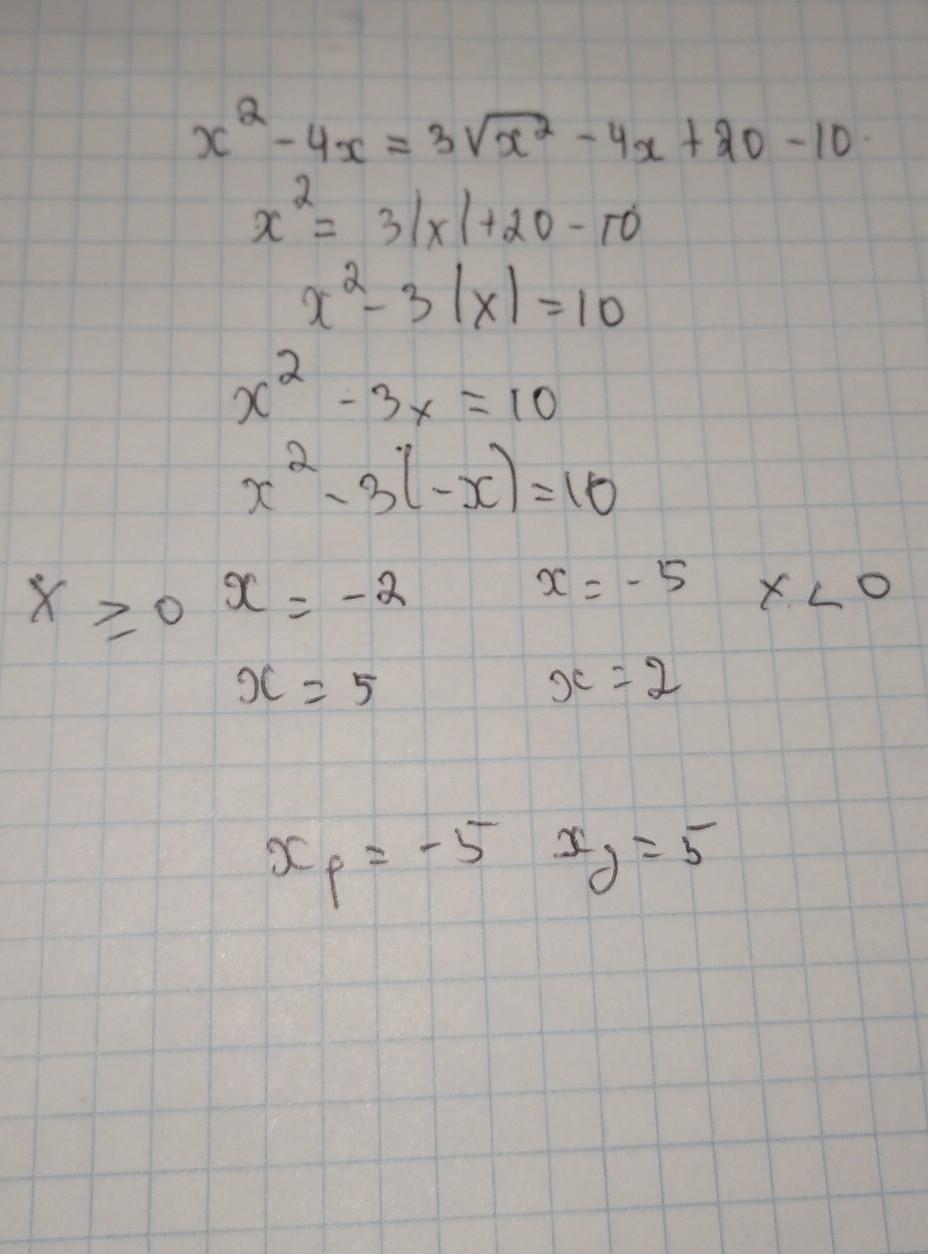 x² - 4x = 3√x² - 4x + 20 - 10
x² = 3|x| + 20 - 10
x² - 3|x| = 10
x² - 3x = 10
x² - 3(-x) = 10
x ≥ 0 x = -2 x = -5 x < 0
x = 5 x = 2
x₁ = -5 x₂ = 5